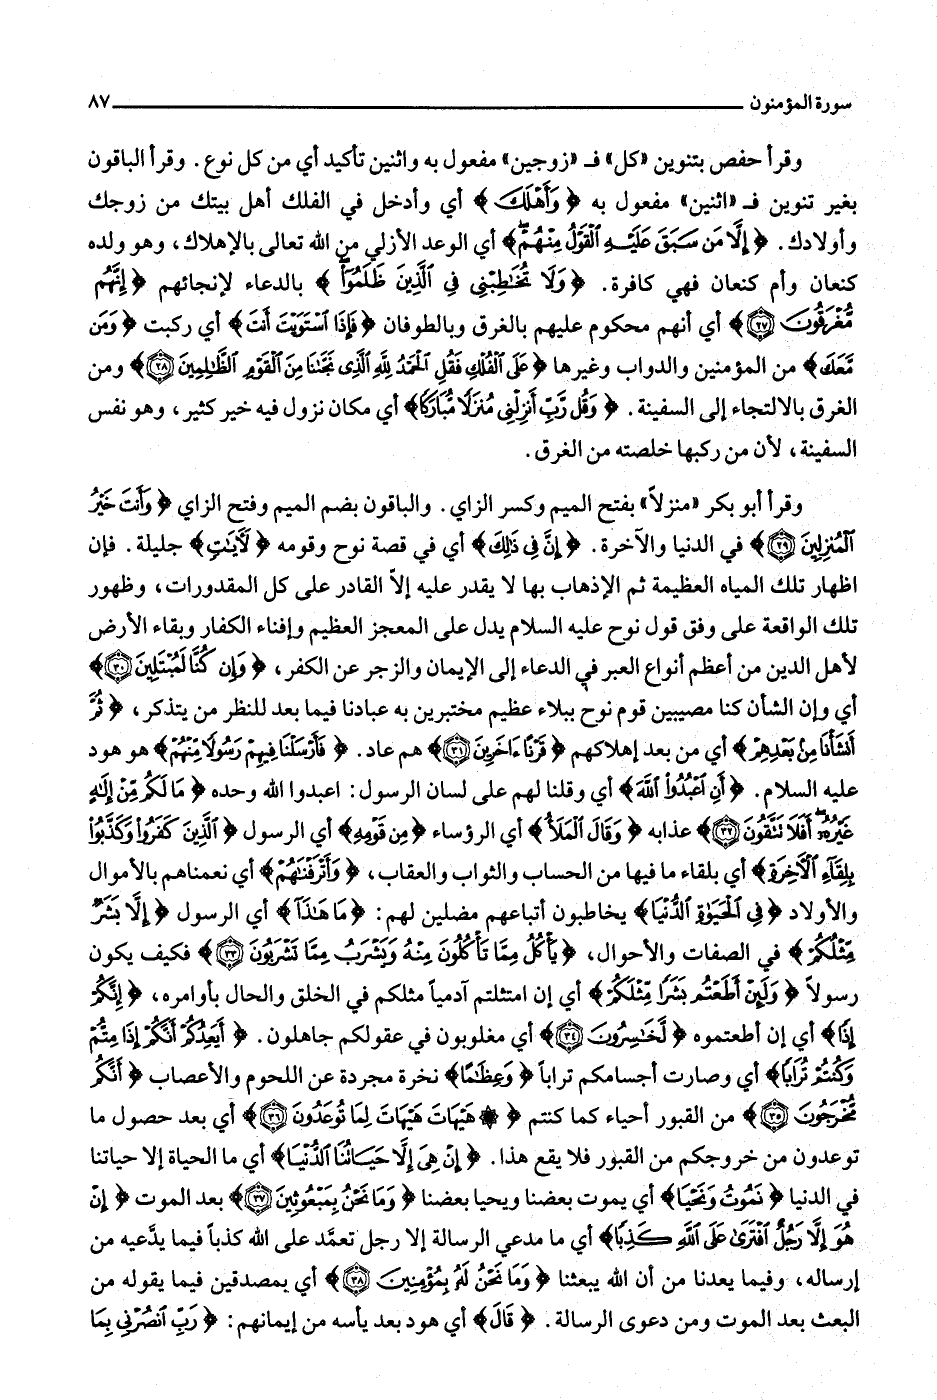 سورة المؤمنون ٨٧
وقرأ حفص بتنوين «كل» فـ «زوجين» مفعول به واثنين تأكيد أي من كل نوع. وقرأ الباقون
بغير تنوين فـ «اثنين» مفعول به ﴿وَأَهْلَكَ﴾ أي وأدخل في الفلك أهل بيتك من زوجك
وأولادك. ﴿إِلَّا مَن سَبَقَ عَلَيْهِ ٱلْقَوْلُ مِنْهُمْ﴾ أي الوعد الأزلي من الله تعالى بالإهلاك، وهو ولده
كنعان وأم كنعان فهي كافرة. ﴿وَلَا تُخَٰطِبْنِى فِى ٱلَّذِينَ ظَلَمُوٓا۟﴾ بالدعاء لإنجائهم ﴿إِنَّهُم
مُّغْرَقُونَ ٢٧﴾ أي أنهم محكوم عليهم بالغرق وبالطوفان ﴿فَإِذَا ٱسْتَوَيْتَ أَنتَ﴾ أي ركبت ﴿وَمَن
مَّعَكَ﴾ من المؤمنين والدواب وغيرها ﴿عَلَى ٱلْفُلْكِ فَقُلِ ٱلْحَمْدُ لِلَّهِ ٱلَّذِى نَجَّىٰنَا مِنَ ٱلْقَوْمِ ٱلظَّٰلِمِينَ ٢٨﴾ ومن
الغرق بالالتجاء إلى السفينة. ﴿وَقُل رَّبِّ أَنزِلْنِى مُنزَلًا مُّبَارَكًا﴾ أي مكان نزول فيه خير كثير، وهو نفس
السفينة، لأن من ركبها خلصته من الغرق.
وقرأ أبو بكر «منزلاً» بفتح الميم وكسر الزاي. والباقون بضم الميم وفتح الزاي ﴿وَأَنتَ خَيْرُ
ٱلْمُنزِلِينَ ٢٩﴾ في الدنيا والآخرة. ﴿إِنَّ فِى ذَٰلِكَ﴾ أي في قصة نوح وقومه ﴿لَأٓيَٰتٍ﴾ جليلة. فإن
اظهار تلك المياه العظيمة ثم الإذهاب بها لا يقدر عليه إلاّ القادر على كل المقدورات، وظهور
تلك الواقعة على وفق قول نوح عليه السلام يدل على المعجز العظيم وإفناء الكفار وبقاء الأرض
لأهل الدين من أعظم أنواع العبر في الدعاء إلى الإيمان والزجر عن الكفر، ﴿وَإِن كُنَّا لَمُبْتَلِينَ ٣٠﴾
أي وإن الشأن كنا مصيبين قوم نوح ببلاء عظيم مختبرين به عبادنا فيما بعد للنظر من يتذكر، ﴿ثُمَّ
أَنشَأْنَا مِنۢ بَعْدِهِمْ﴾ أي من بعد إهلاكهم ﴿قَرْنًا ءَاخَرِينَ ٣١﴾ هم عاد. ﴿فَأَرْسَلْنَا فِيهِمْ رَسُولًا مِّنْهُمْ﴾ هو هود
عليه السلام. ﴿أَنِ ٱعْبُدُوا۟ ٱللَّهَ﴾ أي وقلنا لهم على لسان الرسول: اعبدوا الله وحده ﴿مَا لَكُم مِّنْ إِلَٰهٍ
غَيْرُهُۥٓ أَفَلَا تَتَّقُونَ ٣٢﴾ عذابه ﴿وَقَالَ ٱلْمَلَأُ﴾ أي الرؤساء ﴿مِن قَوْمِهِ﴾ أي الرسول ﴿ٱلَّذِينَ كَفَرُوا۟ وَكَذَّبُوا۟
بِلِقَآءِ ٱلْأَخِرَةِ﴾ أي بلقاء ما فيها من الحساب والثواب والعقاب، ﴿وَأَتْرَفْنَٰهُمْ﴾ أي نعمناهم بالأموال
والأولاد ﴿فِى ٱلْحَيَوٰةِ ٱلدُّنْيَا﴾ يخاطبون أتباعهم مضلين لهم: ﴿مَا هَٰذَآ﴾ أي الرسول ﴿إِلَّا بَشَرٌ
مِّثْلُكُمْ﴾ في الصفات والأحوال، ﴿يَأْكُلُ مِمَّا تَأْكُلُونَ مِنْهُ وَيَشْرَبُ مِمَّا تَشْرَبُونَ ٣٣﴾ فكيف يكون
رسولاً ﴿وَلَئِنْ أَطَعْتُم بَشَرًا مِّثْلَكُمْ﴾ أي إن امتثلتم آدمياً مثلكم في الخلق والحال بأوامره، ﴿إِنَّكُمْ
إِذًا﴾ أي إن أطعتموه ﴿لَّخَٰسِرُونَ ٣٤﴾ أي مغلوبون في عقولكم جاهلون. ﴿أَيَعِدُكُمْ أَنَّكُمْ إِذَا مِتُّمْ
وَكُنتُمْ تُرَابًا﴾ أي وصارت أجسامكم تراباً ﴿وَعِظَٰمًا﴾ نخرة مجردة عن اللحوم والأعصاب ﴿أَنَّكُم
مُّخْرَجُونَ ٣٥﴾ من القبور أحياء كما كنتم ﴿۞ هَيْهَاتَ هَيْهَاتَ لِمَا تُوعَدُونَ ٣٦﴾ أي بعد حصول ما
توعدون من خروجكم من القبور فلا يقع هذا. ﴿إِنْ هِىَ إِلَّا حَيَاتُنَا ٱلدُّنْيَا﴾ أي ما الحياة إلا حياتنا
في الدنيا ﴿نَمُوتُ وَنَحْيَا﴾ أي يموت بعضنا ويحيا بعضنا ﴿وَمَا نَحْنُ بِمَبْعُوثِينَ ٣٧﴾ بعد الموت ﴿إِنْ
هُوَ إِلَّا رَجُلٌ ٱفْتَرَىٰ عَلَى ٱللَّهِ كَذِبًا﴾ أي ما مدعي الرسالة إلا رجل تعمَّد على الله كذباً فيما يدَّعيه من
إرساله، وفيما يعدنا من أن الله يبعثنا ﴿وَمَا نَحْنُ لَهُۥ بِمُؤْمِنِينَ ٣٨﴾ أي بمصدقين فيما يقوله من
البعث بعد الموت ومن دعوى الرسالة. ﴿قَالَ﴾ أي هود بعد يأسه من إيمانهم: ﴿رَبِّ ٱنصُرْنِى بِمَا